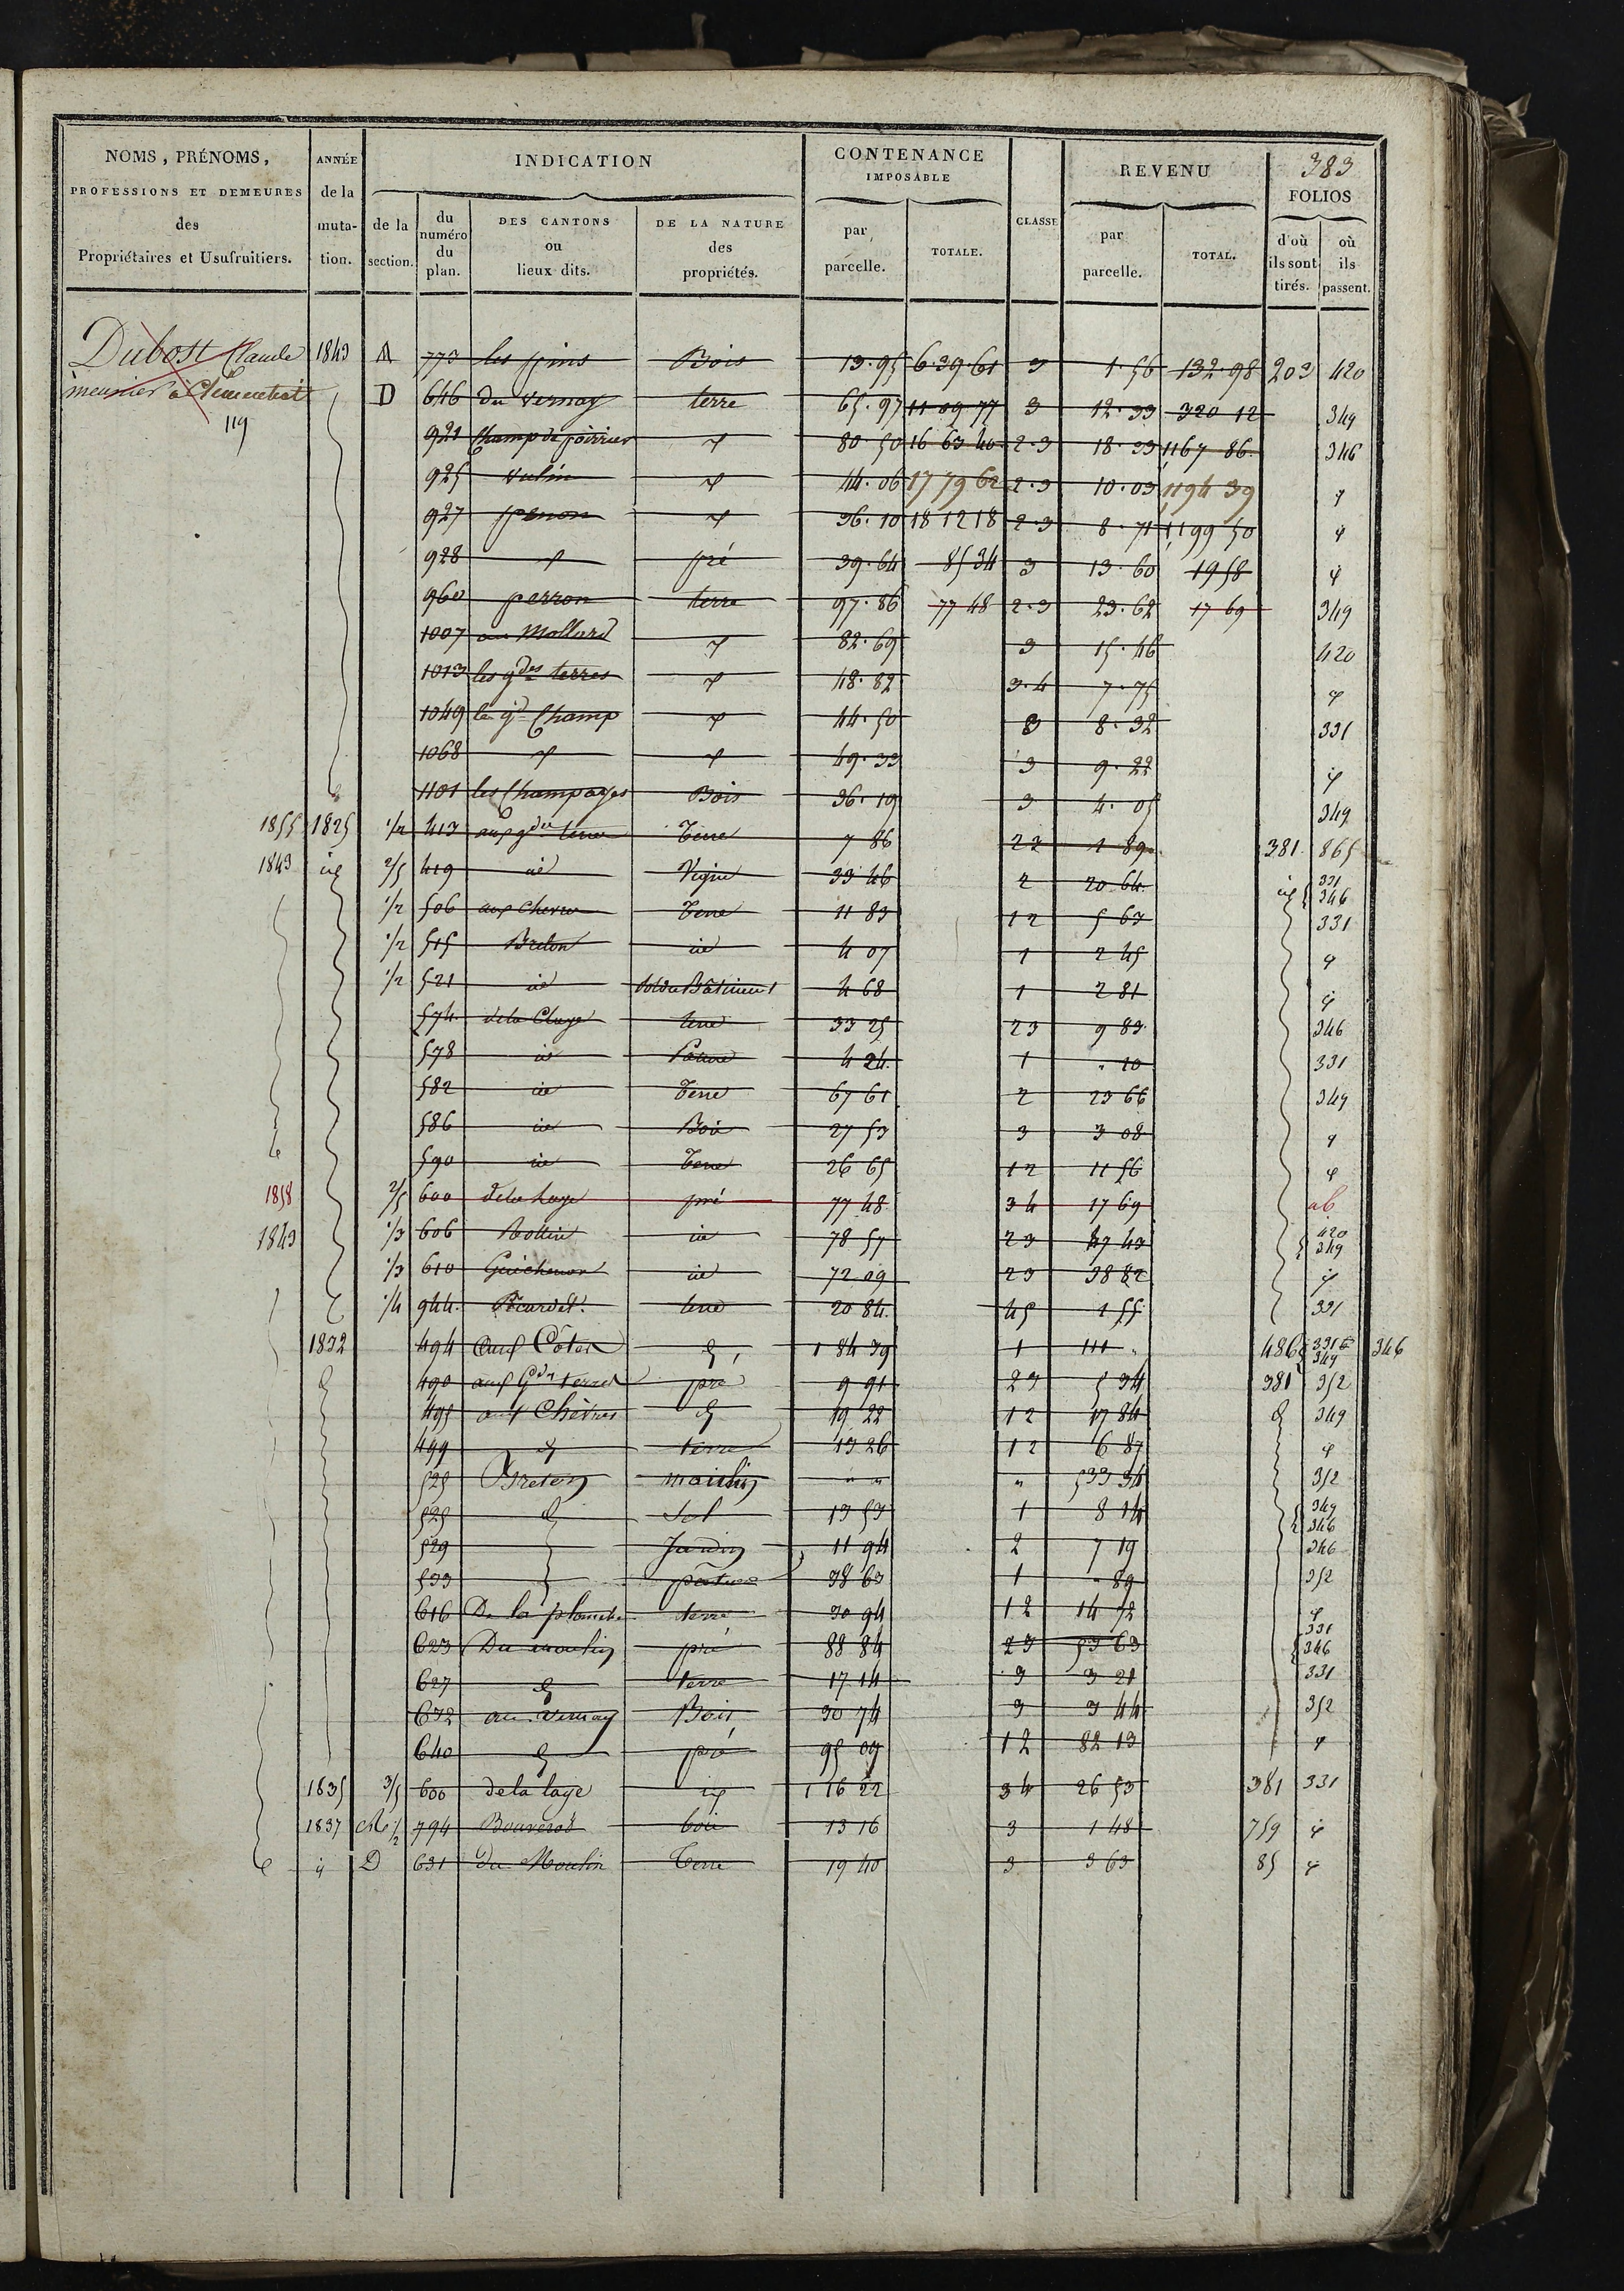 383
NOMS, PRÉNOMS, PROFESSIONS ET DEMEURES des Propriétaires et Usufruitiers.
ANNÉE de la mutation.
INDICATION
de la section.
du numéro du plan.
DES CANTONS ou lieux dits.
DE LA NATURE des propriétés.
CONTENANCE IMPOSABLE
par parcelle.
TOTALE.
CLASSE
REVENU
par parcelle.
TOTAL.
FOLIOS
d'où ils sont tirés.
où ils passent.
Dubost Claude 1843 A 773 les pins Bois 13.95 6.39.61 3 1.56 132.98 203 420
meunier à D 646 du vernay terre 65.97 11 09 77 3 12.33 320 12 349
119
921 Champ de poirier 80 50 16 63 40 2.3 18.33 1167 86 346
925 44.06 17 79 62 2.3 10.03 1194 39
927 36.10 18 12 18 2.3 8.71 1199 50
928 pré 39.64 85 34 3 13.60 19 58
960 perron terre 97.86 77 48 2.3 23.62 17 69 349
1007 au Mollard 82.69 3 15.46 420
1013 les gdes terres 48.82 3.4 7.75
1049 le gd Champ 44.50 3 8.32 331
1068 49.33 3 9.22
1101 les Champages Bois 36.19 3 4.05 349
1855 1825 1/2 413 aux gdes terres Terre 7 86 23 1 89 381 865
1843 id 2/5 419 id Vigne 33 46 2 20 64 id 331 346
1/2 506 aux Chevres Terre 11 83 12 5 63 331
1/2 515 Breton id 4 07 1 2 45
1/2 521 id Sol du Bâtiment 4 68 1 2 81
574 dela Cluse terre 33 25 23 9 83 346
578 id Pature 4 24 1 " 10 331
582 id Terre 67 61 2 23 66 349
586 id Bois 27 53 3 3 08
590 id Terre 26 65 12 11 56
1858 2/5 600 dela laye pré 77 48 34 17 69 ab
1843 1/3 606 id 78 57 23 47 43 420 349
1/3 610 Guichenon id 72 09 23 38 82
1/4 944 terre 20 84 45 1 55 331
1832 494 Aux Côtes 1 84 39 1 111 " 486 331 349 346
490 aux Gdes terres pré 9 91 23 5 34 381 352
495 aux Chèvres 19 22 12 17 84 349
499 terre 13 26 12 6 87
525 Breton moulin " " " 533 34 352
525 Sol 13 53 1 8 14 349 346
529 Jardin 11 94 2 7 19 346
533 pature 38 63 1 " 89 352
616 De la planche terre 30 94 12 14 72
623 Du moulin pré 88 84 23 53 63 331 346
627 terre 17 14 3 3 21 331
632 au vernay Bois 30 74 3 3 44 352
640 pré 95 09 12 82 13
1835 3/5 600 dela laye id 1 16 22 34 26 53 381 331
1837 1/2 794 Bouverot bois 13 16 3 1 48 759
D 631 du Moulin Terre 19 40 3 3 63 85